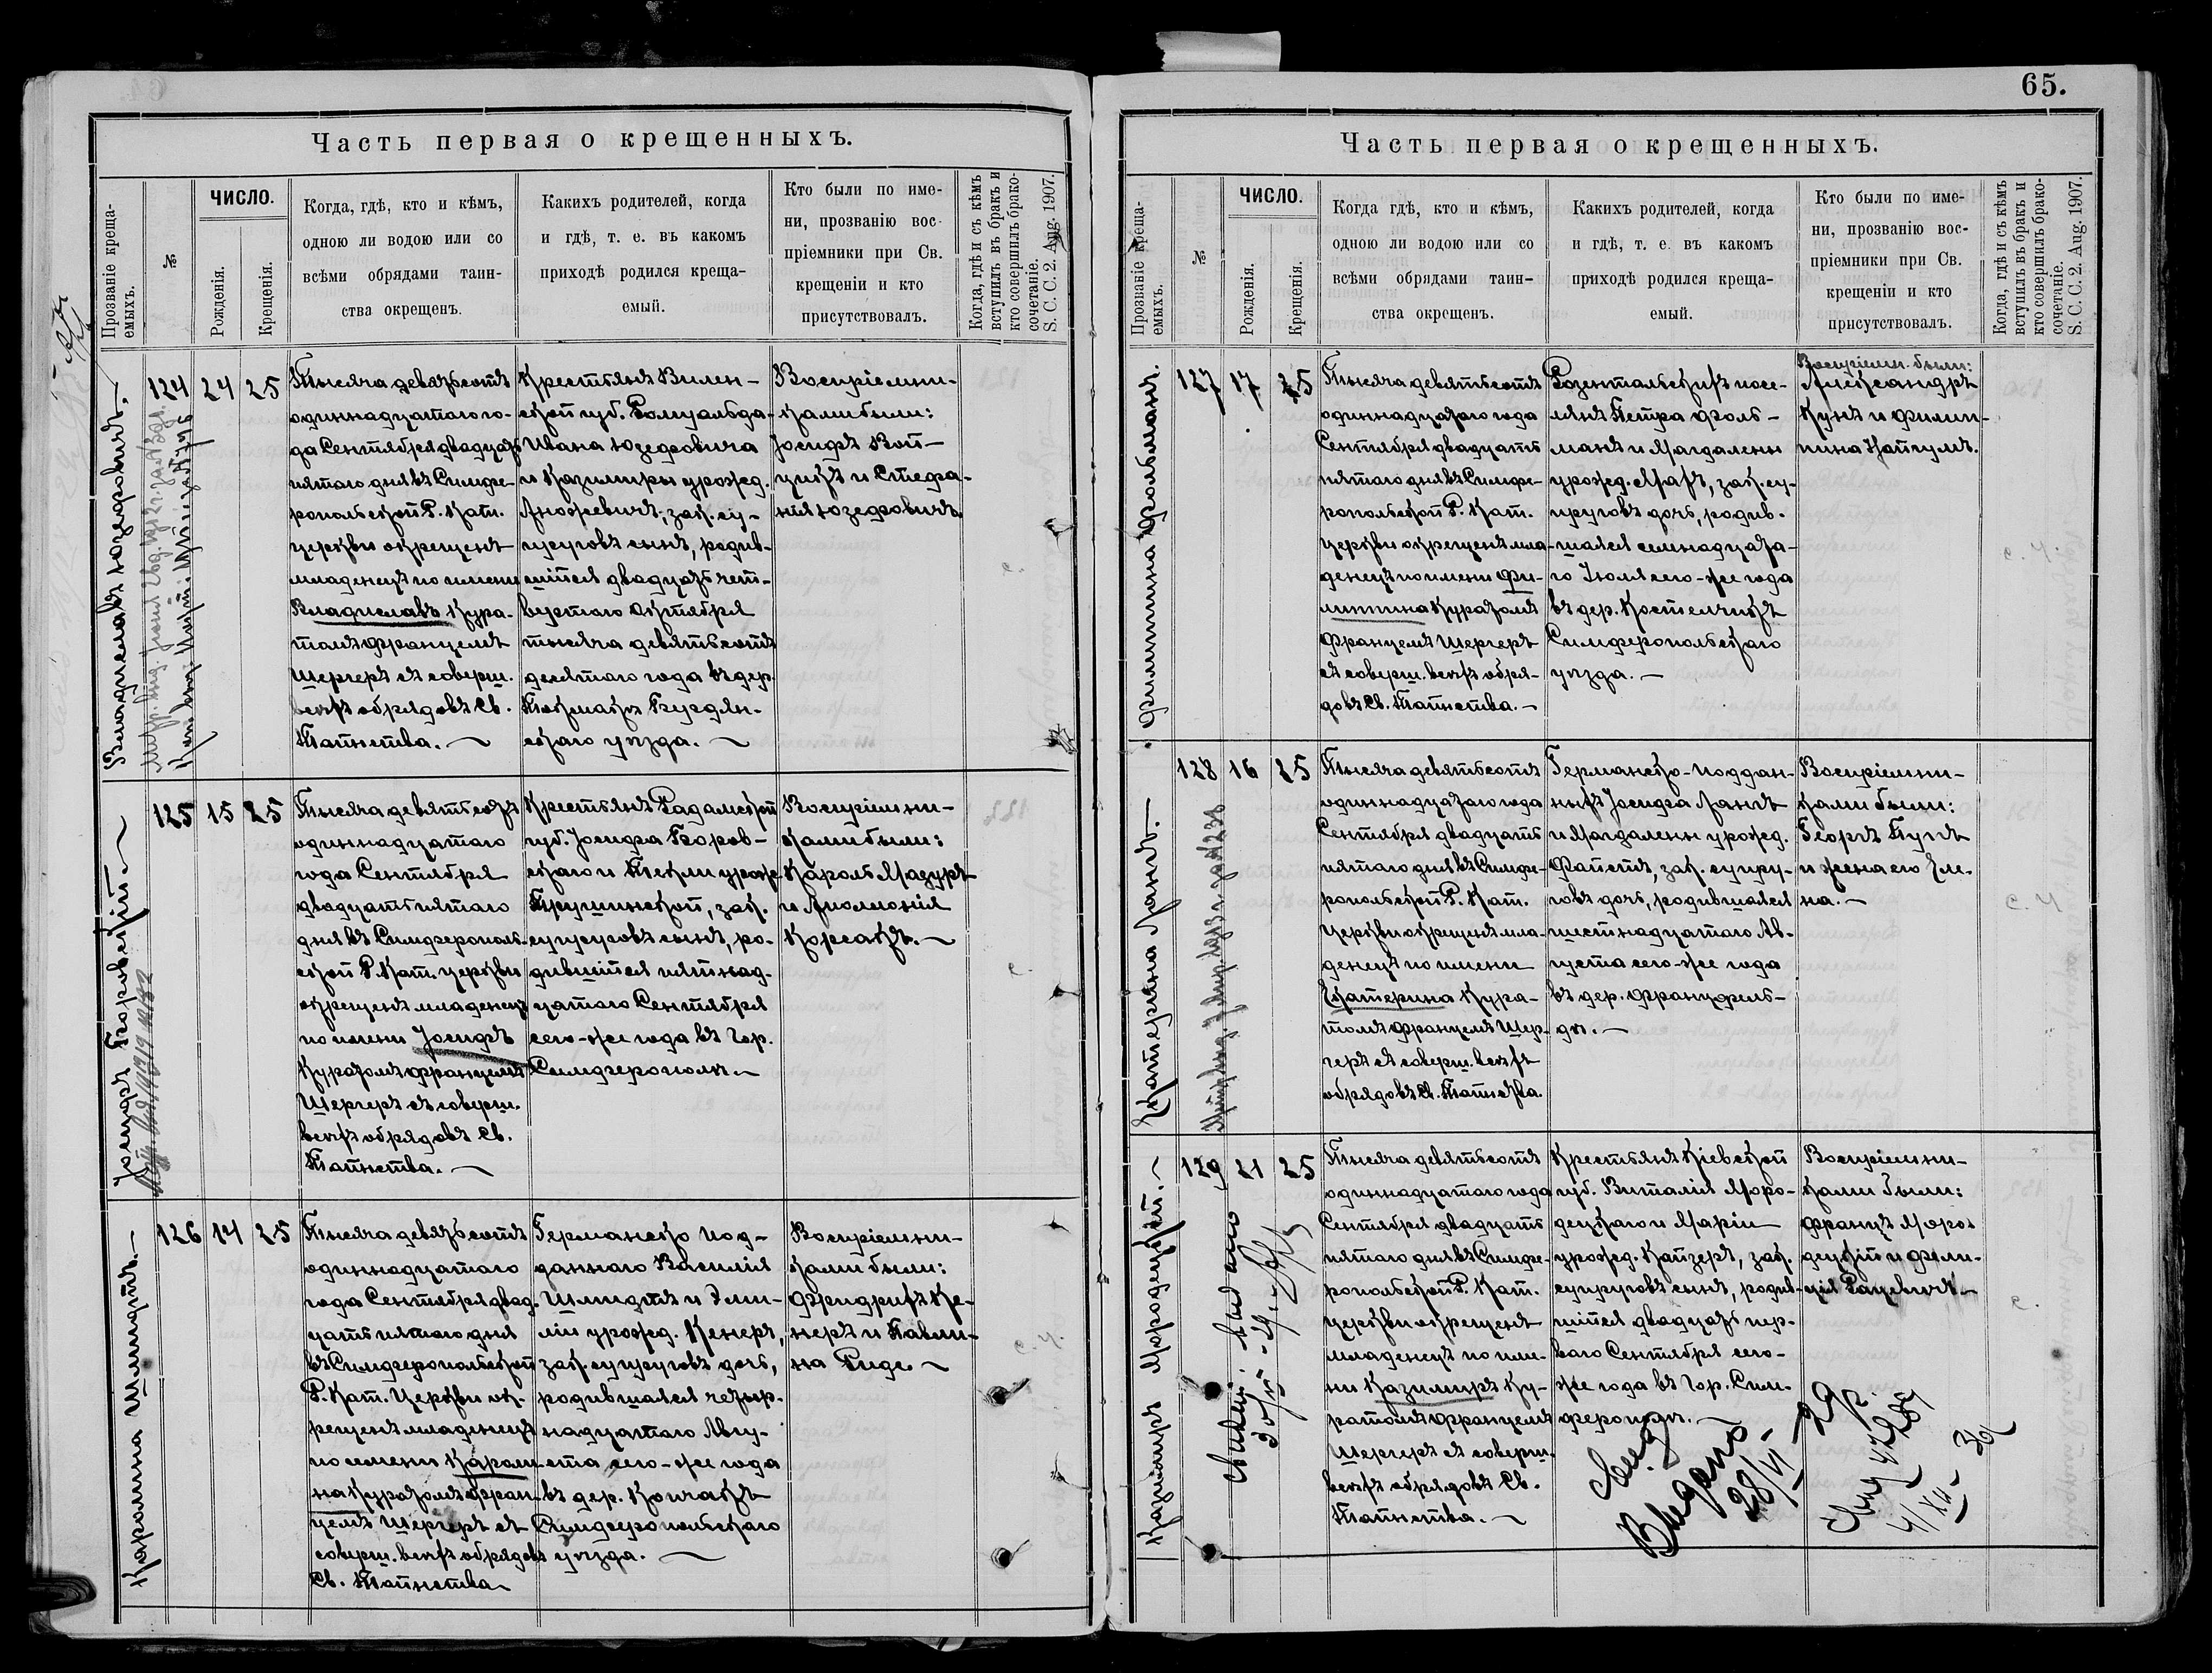 65.
Часть первая о крещенныхъ.
Прозваніе креща-
емыхъ.
№
ЧИСЛО.
Рожденія.
Крещенія.
Когда, гдѣ, кто и кѣмъ,
одною ли водою или со
всѣми обрядами таин-
ства окрещенъ.
Какихъ родителей, когда
и гдѣ, т. е. въ какомъ
приходѣ родился креща-
емый.
Кто были по име-
ни, прозванію вос-
пріемники при Св.
крещеніи и кто
присутствовалъ.
Когда, гдѣ и съ кѣмъ
вступилъ въ бракъ и
кто совершилъ брако-
сочетаніе.
S. C. C. 2. Aug. 1907.
Владиславъ Юзефовичъ.
124
24
25
Тысяча девятьсотъ
одиннадцатаго го-
да Сентября двадцать
пятаго дня въ Симфе-
ропольской Р. Кат.
церкви окрещенъ
младенецъ по имени
Владиславъ Кура-
томъ Францемъ
Шергеръ съ соверш.
всѣхъ обрядовъ Св.
Таинства.
Крестьянъ Вилен-
ской губ. Ромуальда-
Ивана Юзефовича
и Казимиры урожд.
зак. су-
пруговъ сынъ, родив-
шійся двадцать чет-
вертаго Октября
тысяча девятьсотъ
десятаго года въ дер.
Токмакъ Бердян-
скаго уѣзда.
Воспріемни-
ками были:
Іосифъ Вой-
цикъ и Стефа-
нія Юзефовичъ.
Іосифъ Боровскій
125
15
25
Тысяча девятьсотъ
одиннадцатаго
года Сентября
двадцать пятаго
дня въ Симферополь-
ской Р. Кат. церкви
окрещенъ младенецъ
по имени Іосифъ
Куратомъ Францемъ
Шергеръ съ соверш.
всѣхъ обрядовъ Св.
Таинства.
Крестьянъ Радомской
губ. Іосифа Боров-
скаго и Теклы урожд.
Трушинской, зак.
супруговъ сынъ, ро-
дившійся пятнад-
цатаго Сентября
сего-же года въ гор.
Симферополѣ.
Воспріемни-
ками были:
Кароль Мазуръ
и Аполлонія
Корсакъ.
Каролина Шмидтъ.
126
14
25
Тысяча девятьсотъ
одиннадцатаго
года Сентября двад-
цать пятаго дня
въ Симферопольской
Р. Кат. Церкви ок-
рещенъ младенецъ
по имени Кароли-
на Куратомъ Фран-
цемъ Шергеръ съ
соверш. всѣхъ обрядовъ
Св. Таинства
Германско под-
даннаго Василія
Шмидтъ и Эми-
ліи урожд. Кенеръ,
зак. супруговъ дочь,
родившаяся четыр-
надцатаго Авгу-
ста сего-же года
въ дер. Кончакъ
Симферопольскаго
уѣзда.
Воспріемни-
ками были:
Фридрихъ Ке-
неръ и Павли-
на Риде
Часть первая о крещенныхъ.
Прозваніе креща-
емыхъ.
№
ЧИСЛО.
Рожденія.
Крещенія.
Когда гдѣ, кто и кѣмъ,
одною ли водою или со
всѣми обрядами таин-
ства окрещенъ.
Какихъ родителей, когда
и гдѣ, т. е. въ какомъ
приходѣ родился креща-
емый.
Кто были по име-
ни, прозванію вос-
пріемники при Св.
крещеніи и кто
присутствовалъ.
Когда, гдѣ и съ кѣмъ
вступилъ въ бракъ и
кто совершилъ брако-
сочетаніе.
S. C. C. 2. Aug. 1907.
Филиппина Фольманъ.
127
17
25
Тысяча девятьсотъ
одиннадцатаго года
Сентября двадцать
пятаго дня въ Симфе-
ропольской Р. Кат.
церкви окрещенъ мла-
денецъ по имени Фи-
липпина Куратомъ
Францемъ Шергеръ
съ соверш. всѣхъ обря-
довъ Св. Таинства.
Розентальскихъ посе-
лянъ Петра Фоль-
манъ и Магдалены
урожд. Макъ, зак. су-
пруговъ дочь, родив-
шаяся семнадцата-
го Іюля сего-же года
въ дер. Костемчикъ
Симферопольскаго
уѣзда.
Воспріемн. были:
Александръ
Кунъ и Филип-
пина
Екатерина Лангъ.
128
16
25
Тысяча девятьсотъ
одиннадцатаго года
Сентября двадцать
пятаго дня въ Симфе-
ропольской Р. Кат.
церкви окрещенъ мла-
денецъ по имени
Екатерина Кура-
томъ Францемъ Шер-
геръ съ соверш. всѣхъ
обрядовъ Св. Таинства.
Германско-поддан-
ныхъ Іосифа Лангъ
и Магдалены урожд.
Фаистъ, зак. супру-
говъ дочь, родившаяся
шестнадцатаго Ав-
густа сего-же года
въ дер. Францфель-
дѣ.
Воспріемни-
ками были:
Георгъ
и жена его Еле-
на.
Казиміръ Мородецкій.
129
21
25
Тысяча девятьсотъ
одиннадцатаго года
Сентября двадцать
пятаго дня въ Симфе-
ропольской Р. Кат.
церкви окрещенъ
младенецъ по име-
ни Казиміръ Ку-
ратомъ Францемъ
Шергеръ съ соверш.
всѣхъ обрядовъ Св.
Таинства.
Крестьянъ Кіевской
губ. Виталія Моро-
децкаго и Маріи
урожд. Кайзеръ, зак.
супруговъ сынъ, родив-
шійся двадцать пер-
ваго Сентября сего-
же года въ гор. Сим-
ферополѣ.
Воспріемни-
ками были:
Францъ Моро-
децкій и Фели-
ція Рацевичъ
28/VI